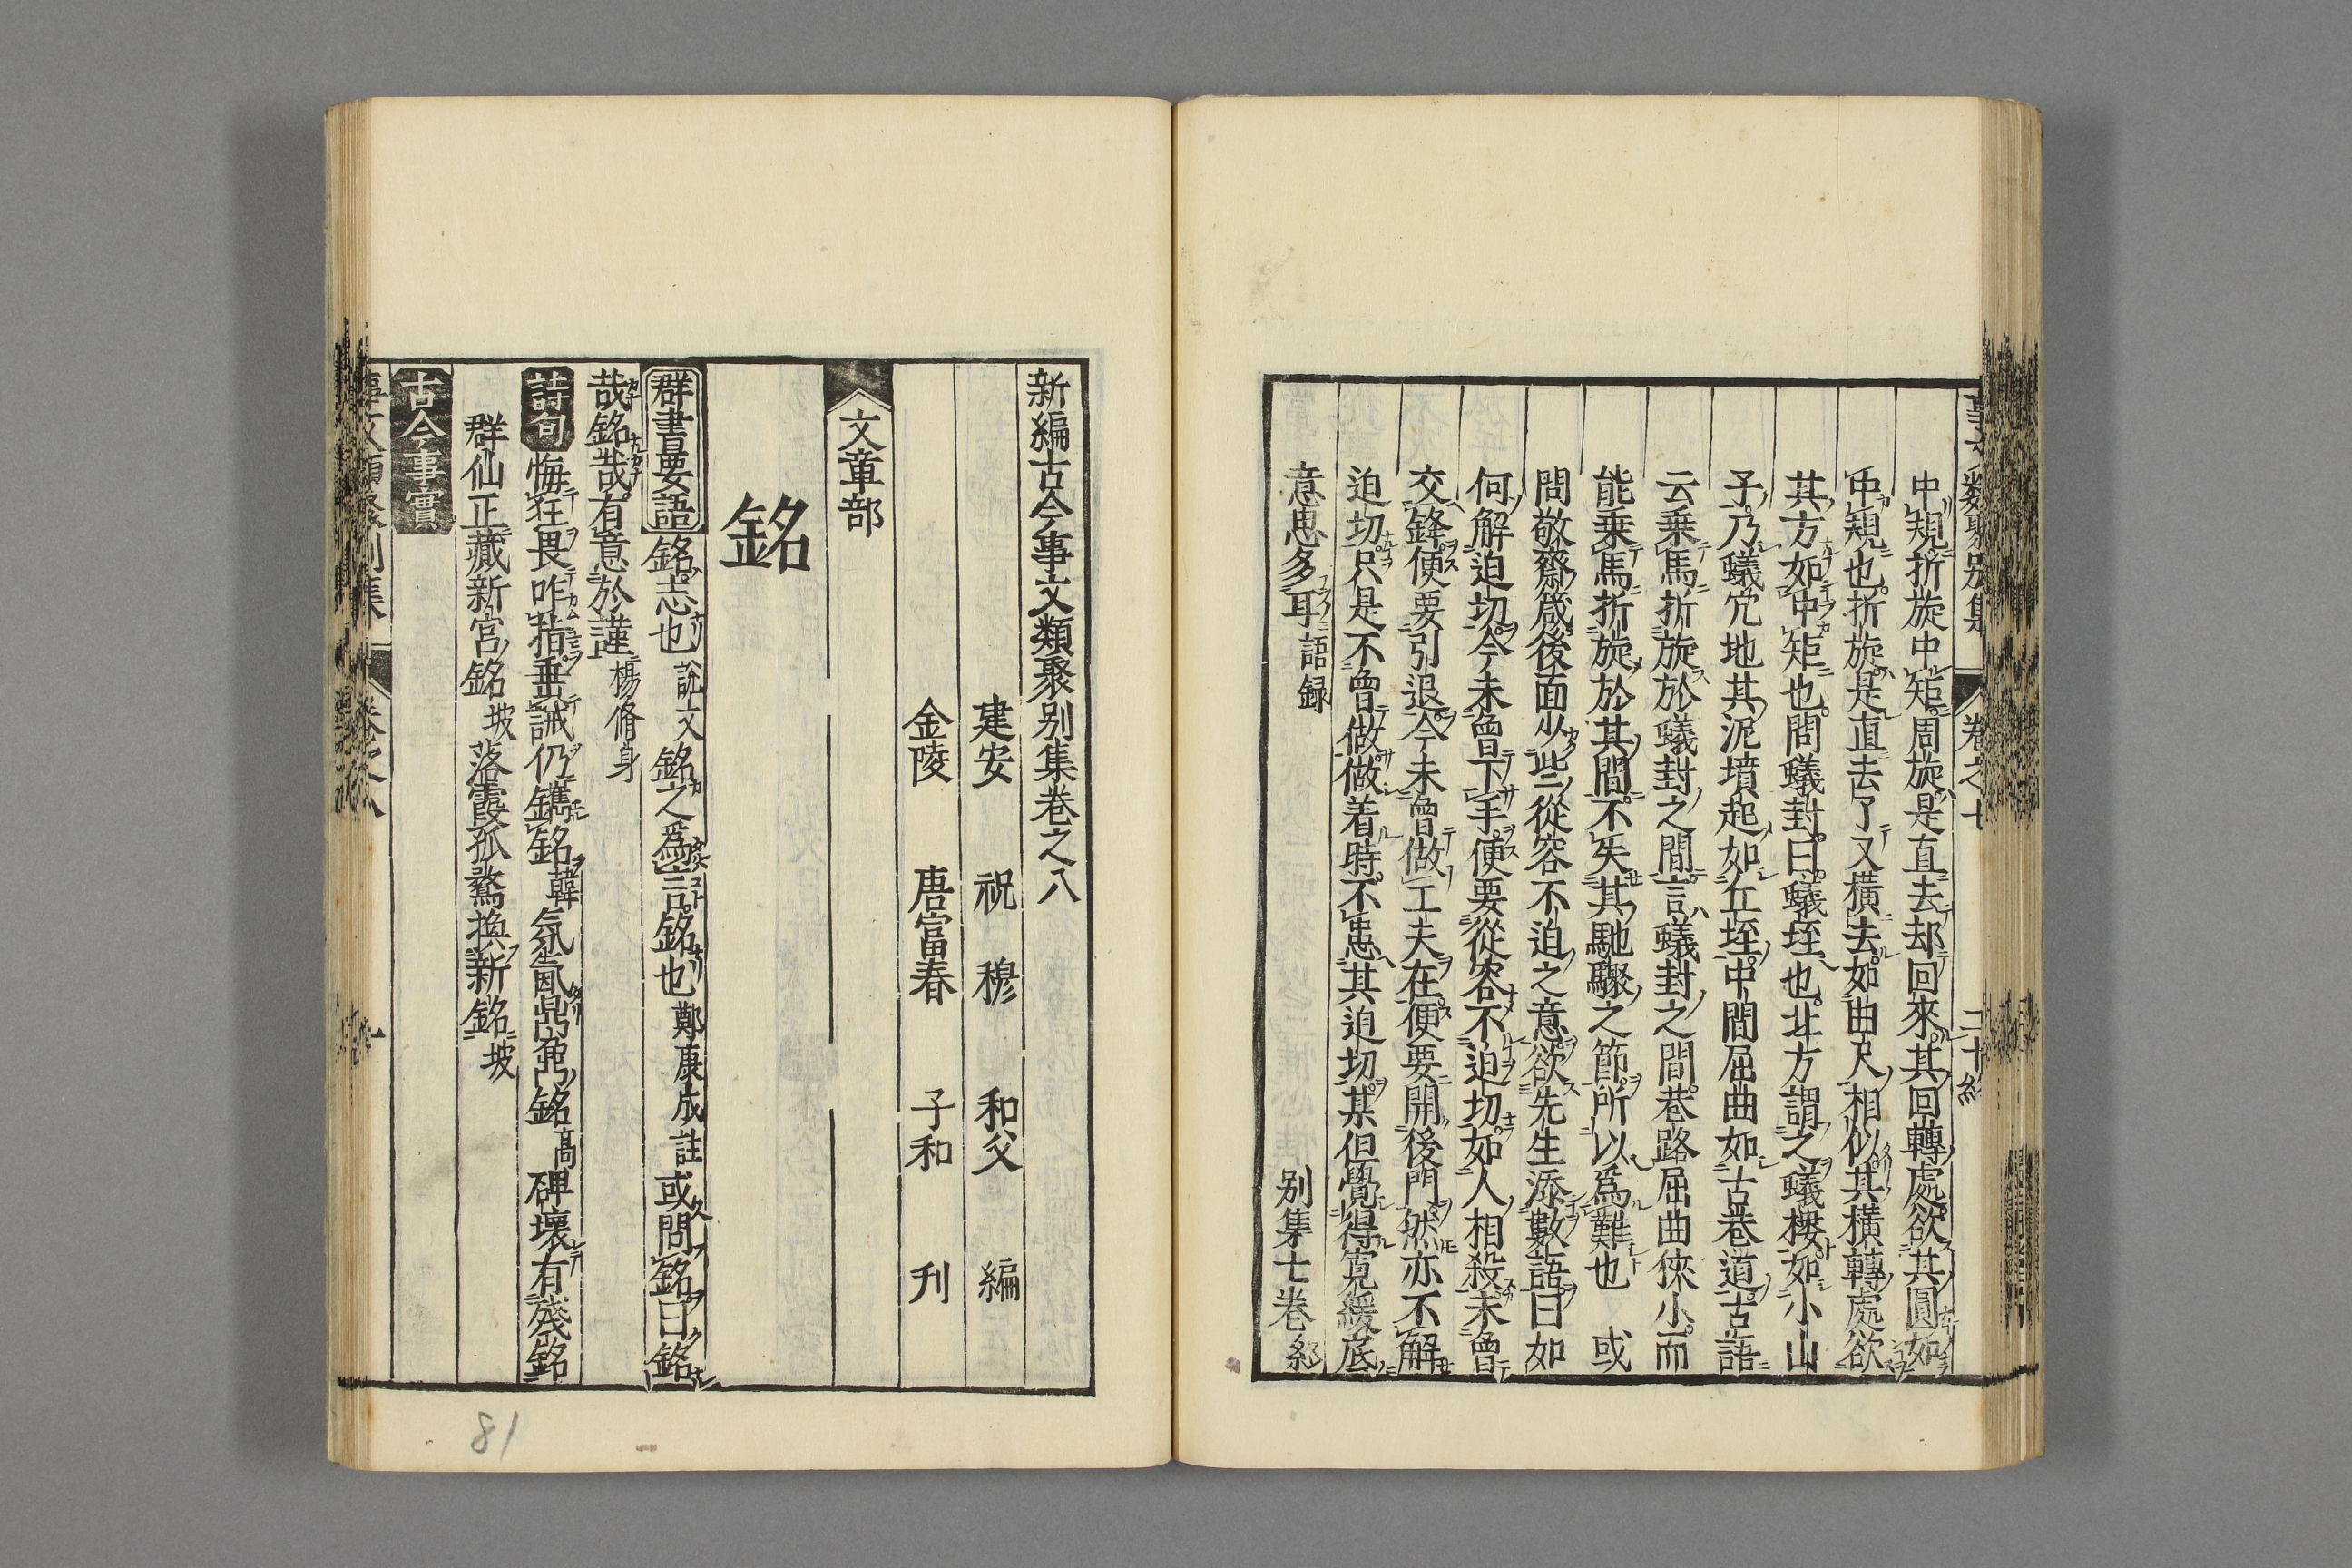 中規折旋中矩周旋是直去却回來其回轉處欲其圓如
中規也折旋是直去了又橫去如曲尺相似其橫轉處欲
其方如中矩也問蟻封曰蟻垤也北方謂之蟻樓如小山
子乃蟻穴地其泥墳起如丘垤中間屈曲如古巷道古語
云乘馬折旋於蟻封之間言蟻封之間巷路屈曲俠小而
能乘馬折旋於其間不失其馳驟之節所以爲難也　或
問敬齋箴後面少些從容不迫之意欲先生添數語曰如
何解迫切今未曾下手便要從容不迫切如人相殺未曾
交鋒便要引退今未曾做工夫在便要開後門然亦不解
迫切只是不曾做做着時不患其迫切某但覺得寬緩底
意思多耳語録　别集七巻終
新編古今事文類聚别集巻之八
建安　祝　穆　和父　編
金陵　唐富春　子和　刋
文章部
銘
群書要語銘志也説文銘之爲言銘也鄭康成註或問銘曰銘
哉銘哉有意於謹楊脩身
詩句悔狂畏咋指垂誡仍鐫銘韓氛氳鼎鼐銘高碑壞有殘銘
群仙正藏新宫銘坡落霞孤鶩換新銘坡
古今事實
81